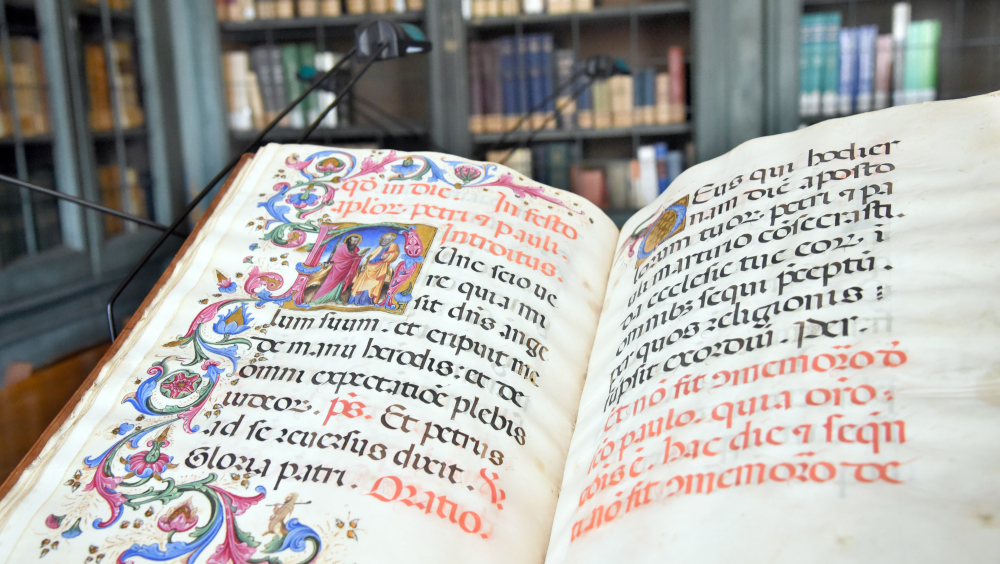 qō in die. In festo
aplor. petri ⁊ pauli.
Introitus.
Unc scio ue
re quia mi
sit dn̄s ange
lum suum. et eripuit me
de manu herodis: et de
omni expectatiōe plebis
iudeor. p̄s. Et petrus
ad se reuersus dixit. ℣.
Gloria patri. Oratio.
Eus qui hodier
nam diē aposto
lorum tuor. petri ⁊ pa
uli martirio cōsecrasti.
da ecclesie tue eor. ī
omnibꝫ sequi p̄ceptū.
per quos religionis
sūpsit exordiū. Per.
Et nō fit ɔmemorō d̄
scō paulo. quia orō
ōis ē. hac die ⁊ seqn̄
ti nō fit ɔmemorō de